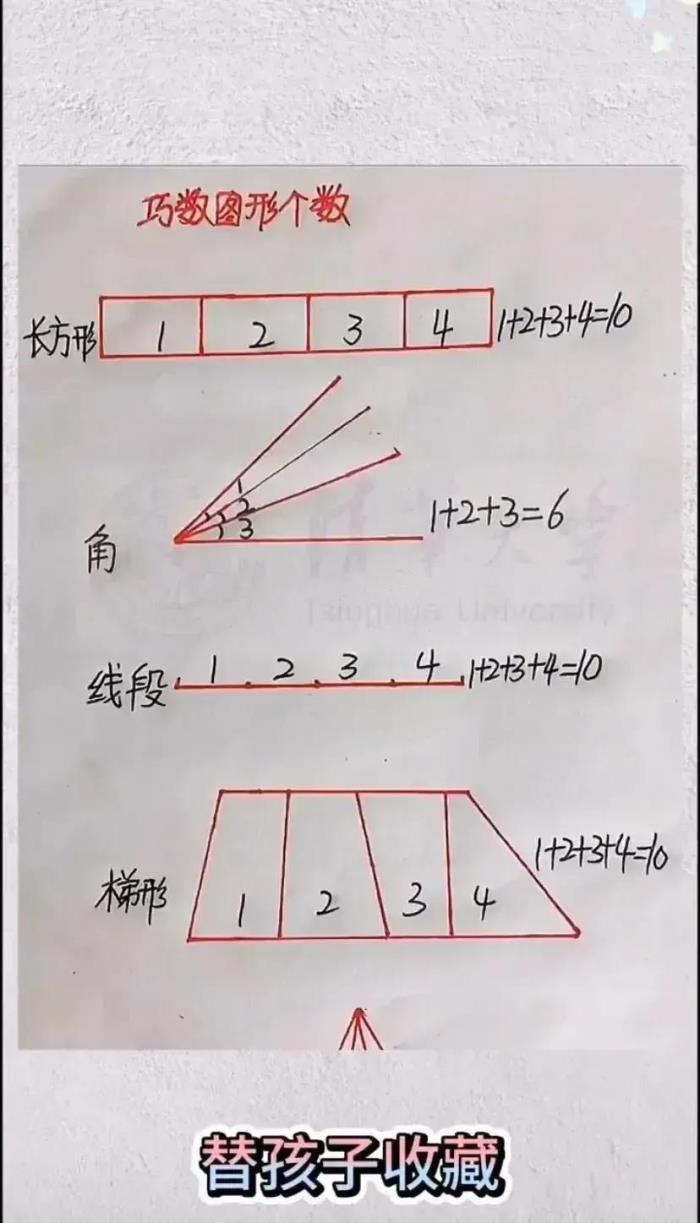 巧数图形个数
长方形 1 2 3 4 1+2+3+4=10
1
2
3
角 1+2+3=6
清华大学
Tsinghua University
线段 1 2 3 4 1+2+3+4=10
梯形 1 2 3 4 1+2+3+4=10
替孩子收藏